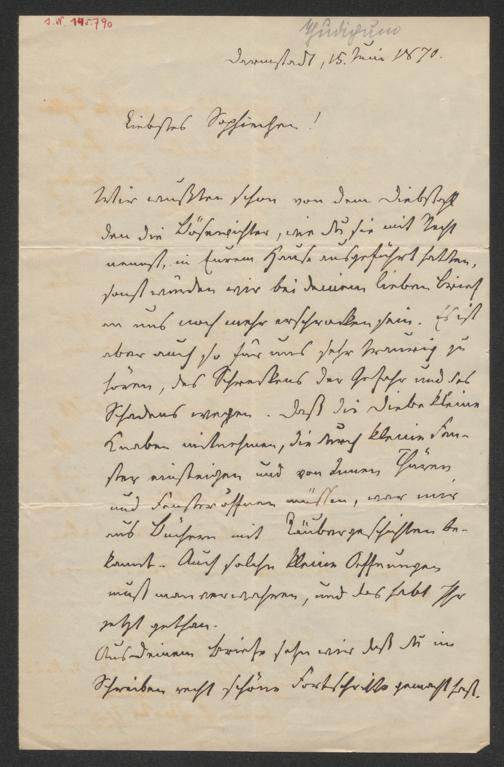 I.N. 145.790
Thudichum
Darmstadt, 15. Juni 1870.
Liebstes Sophiechen!
Wir wußten schon von dem Diebstahl
den die Bösewichter, wie du sie mit Recht
nennst, in Eurem Hause ausgeführt hatten,
sonst würden wir bei deinem lieben Brief
an uns noch mehr erschrocken sein. Es ist
aber auch so für uns sehr traurig zu
hören, des Schreckens der Gefahr und des
Schadens wegen. Daß die Diebe kleine
Knaben mitnehmen, die durch kleine Fen-
ster einsteigen und von Innen Thüren
und Fenster öffnen müssen, war mir
aus Büchern mit Räubergeschichten be-
kannt. Auch solche kleine Oeffnungen
muß man verwahren, und das habt Ihr
jetzt gethan.
Aus deinem Briefe sehn wir daß du im
Schreiben recht schöne Fortschritte gemacht hast.